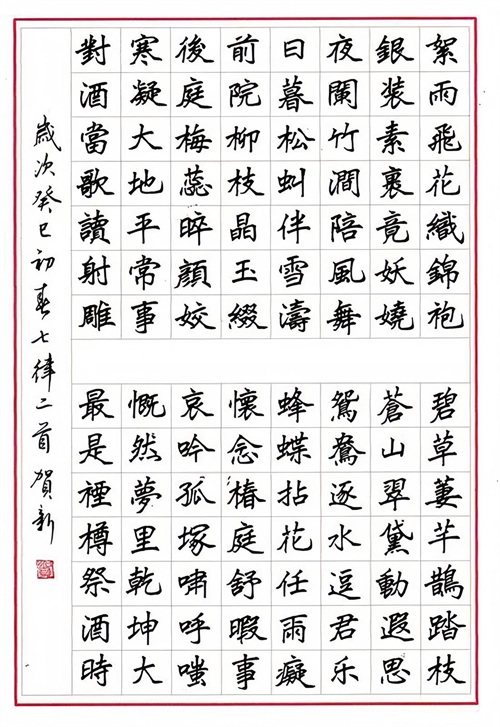 絮雨飛花織錦袍
銀装素裹竟妖嬈
夜闌竹澗陪風舞
日暮松虯伴雪濤
前院柳枝晶玉綴
後庭梅蕊晬顏姣
寒凝大地平常事
對酒當歌讀射雕
碧草萋芊鵲踏枝
蒼山翠黛動遐思
鴛鴦逐水逗君乐
蜂蝶拈花任雨癡
懷念椿庭舒暇事
哀吟孤塚嘯呼嗤
慨然夢里乾坤大
最是禋樽祭酒時
歲次癸巳初春七律二首賀新